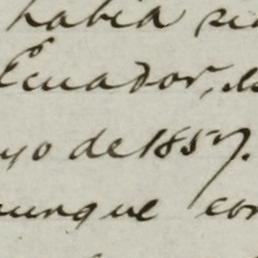 había
Ecuador,
yo de 1857.
aunque con